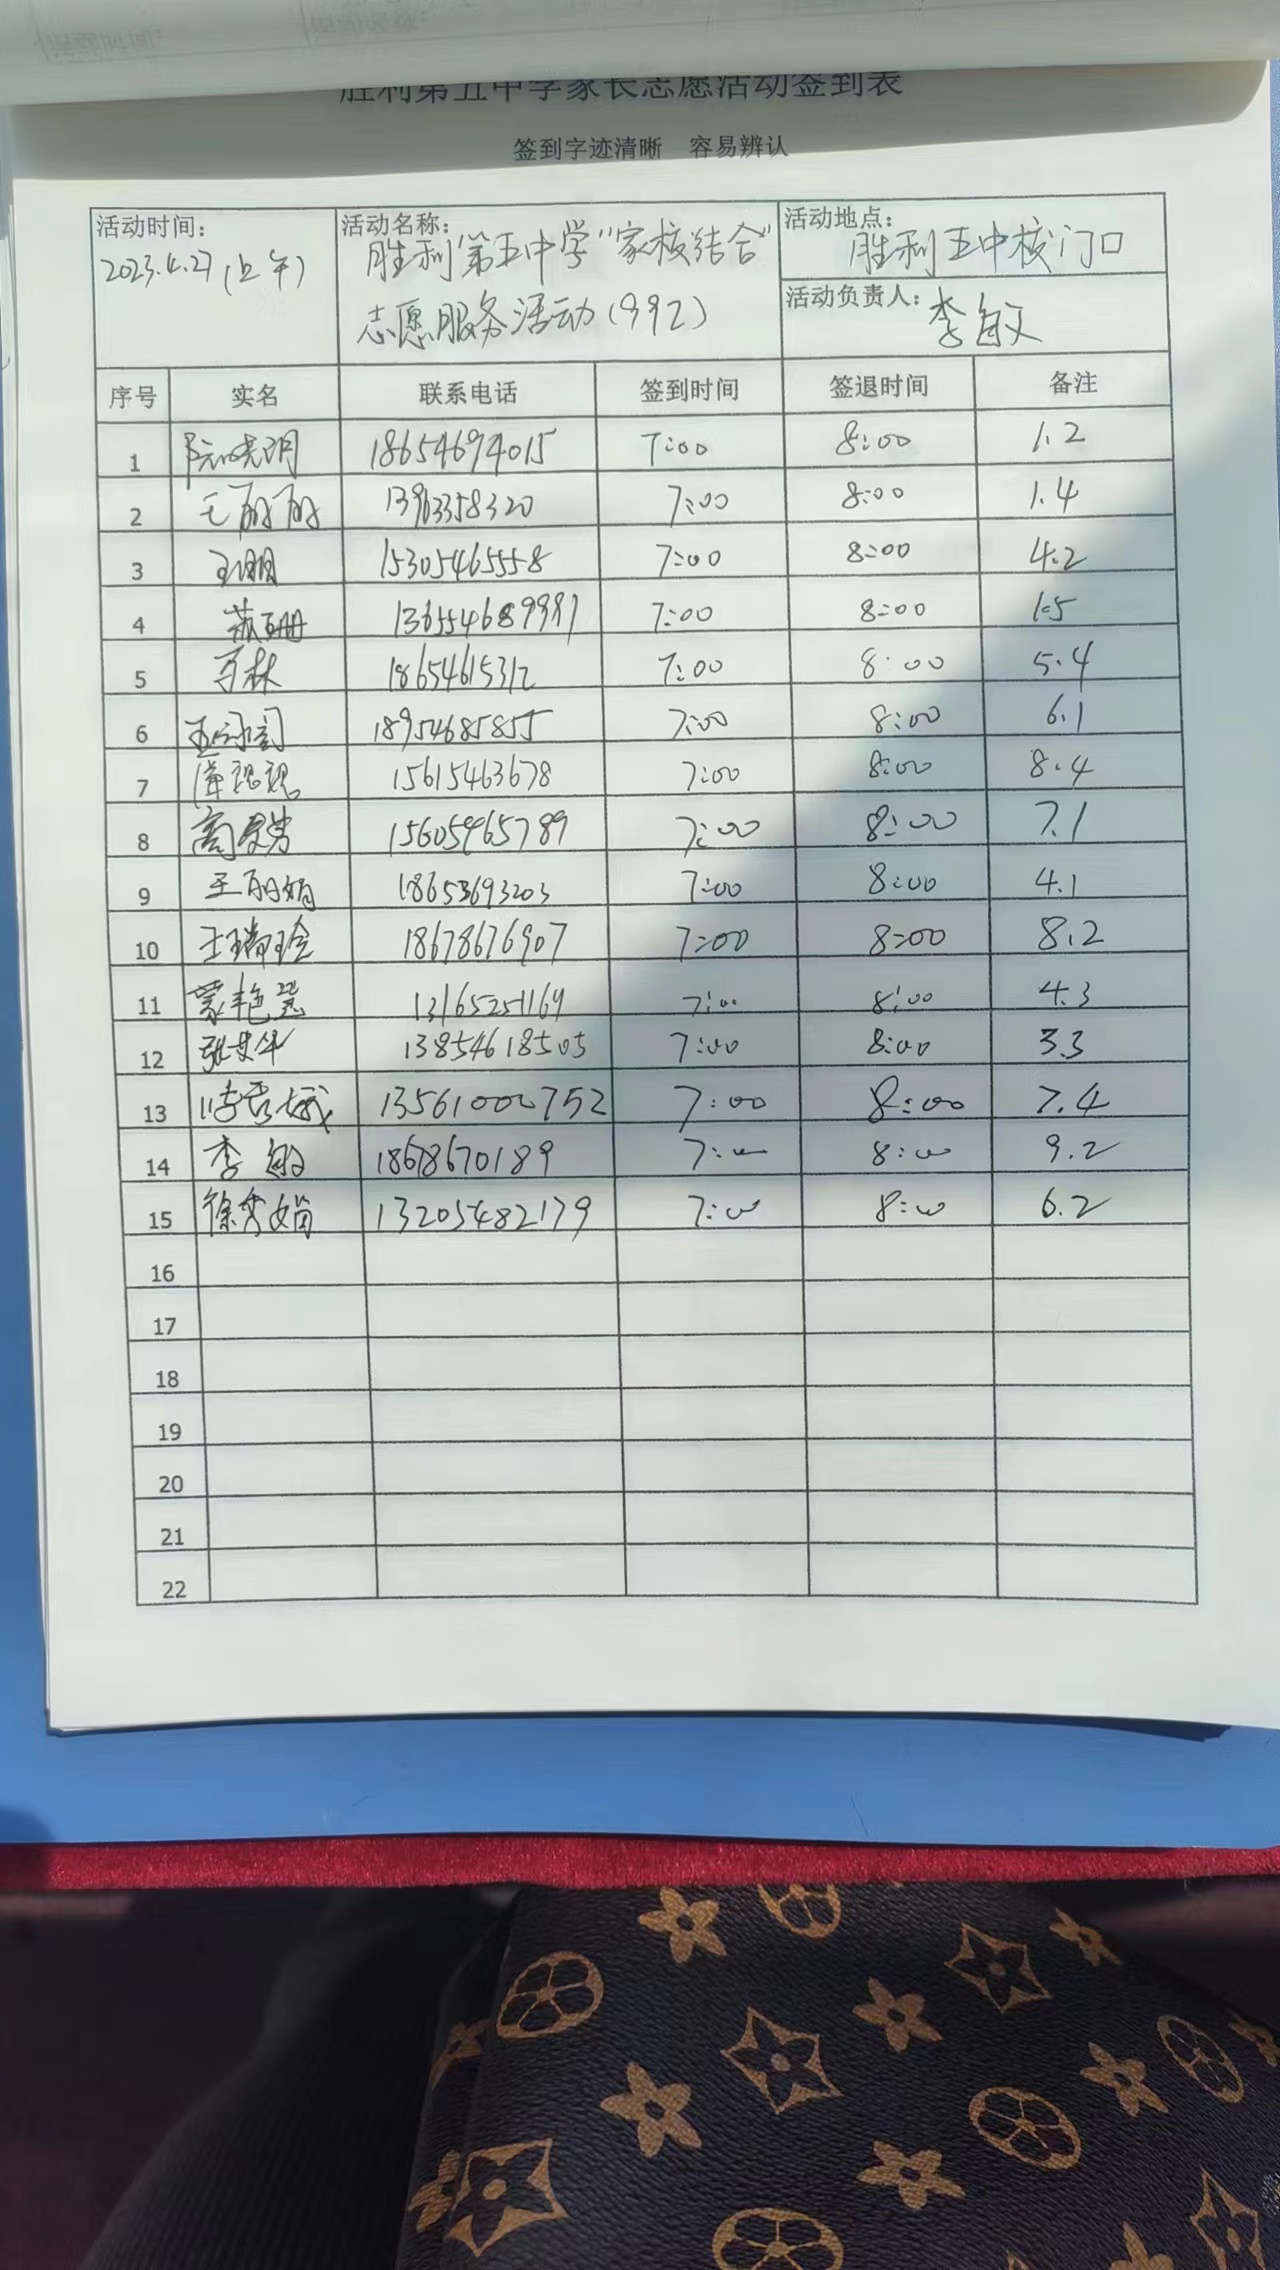 胜利第五中学家长志愿活动签到表
签到字迹清晰 容易辨认
活动时间： 活动名称： 活动地点：
2023.4.27(上午) 胜利第五中学"家校结合" 胜利五中校门口
志愿服务活动(992) 活动负责人：李敏
序号 实名 联系电话 签到时间 签退时间 备注
1 陈晓明 18654694015 7:00 8:00 1.2
2 王丽丽 13963358320 7:00 8:00 1.4
3 15305465558 7:00 8:00 4.2
4 7:00 8:00 1.5
5 18654615312 7:00 8:00 5.4
6 18954685855 7:00 8:00 6.1
7 15615463678 7:00 8:00 8.4
8 15605465789 7:00 8:00 7.1
9 王丽娟 18653693203 7:00 8:00 4.1
10 王瑞玲 18678676907 7:00 8:00 8.2
11 蒙艳慧 13165251169 7:00 8:00 4.3
12 13854618505 7:00 8:00 3.3
13 13561000752 7:00 8:00 7.4
14 李敏 18678670189 7:00 8:00 9.2
15 徐秀娟 13205482179 7:00 8:00 6.2
16
17
18
19
20
21
22